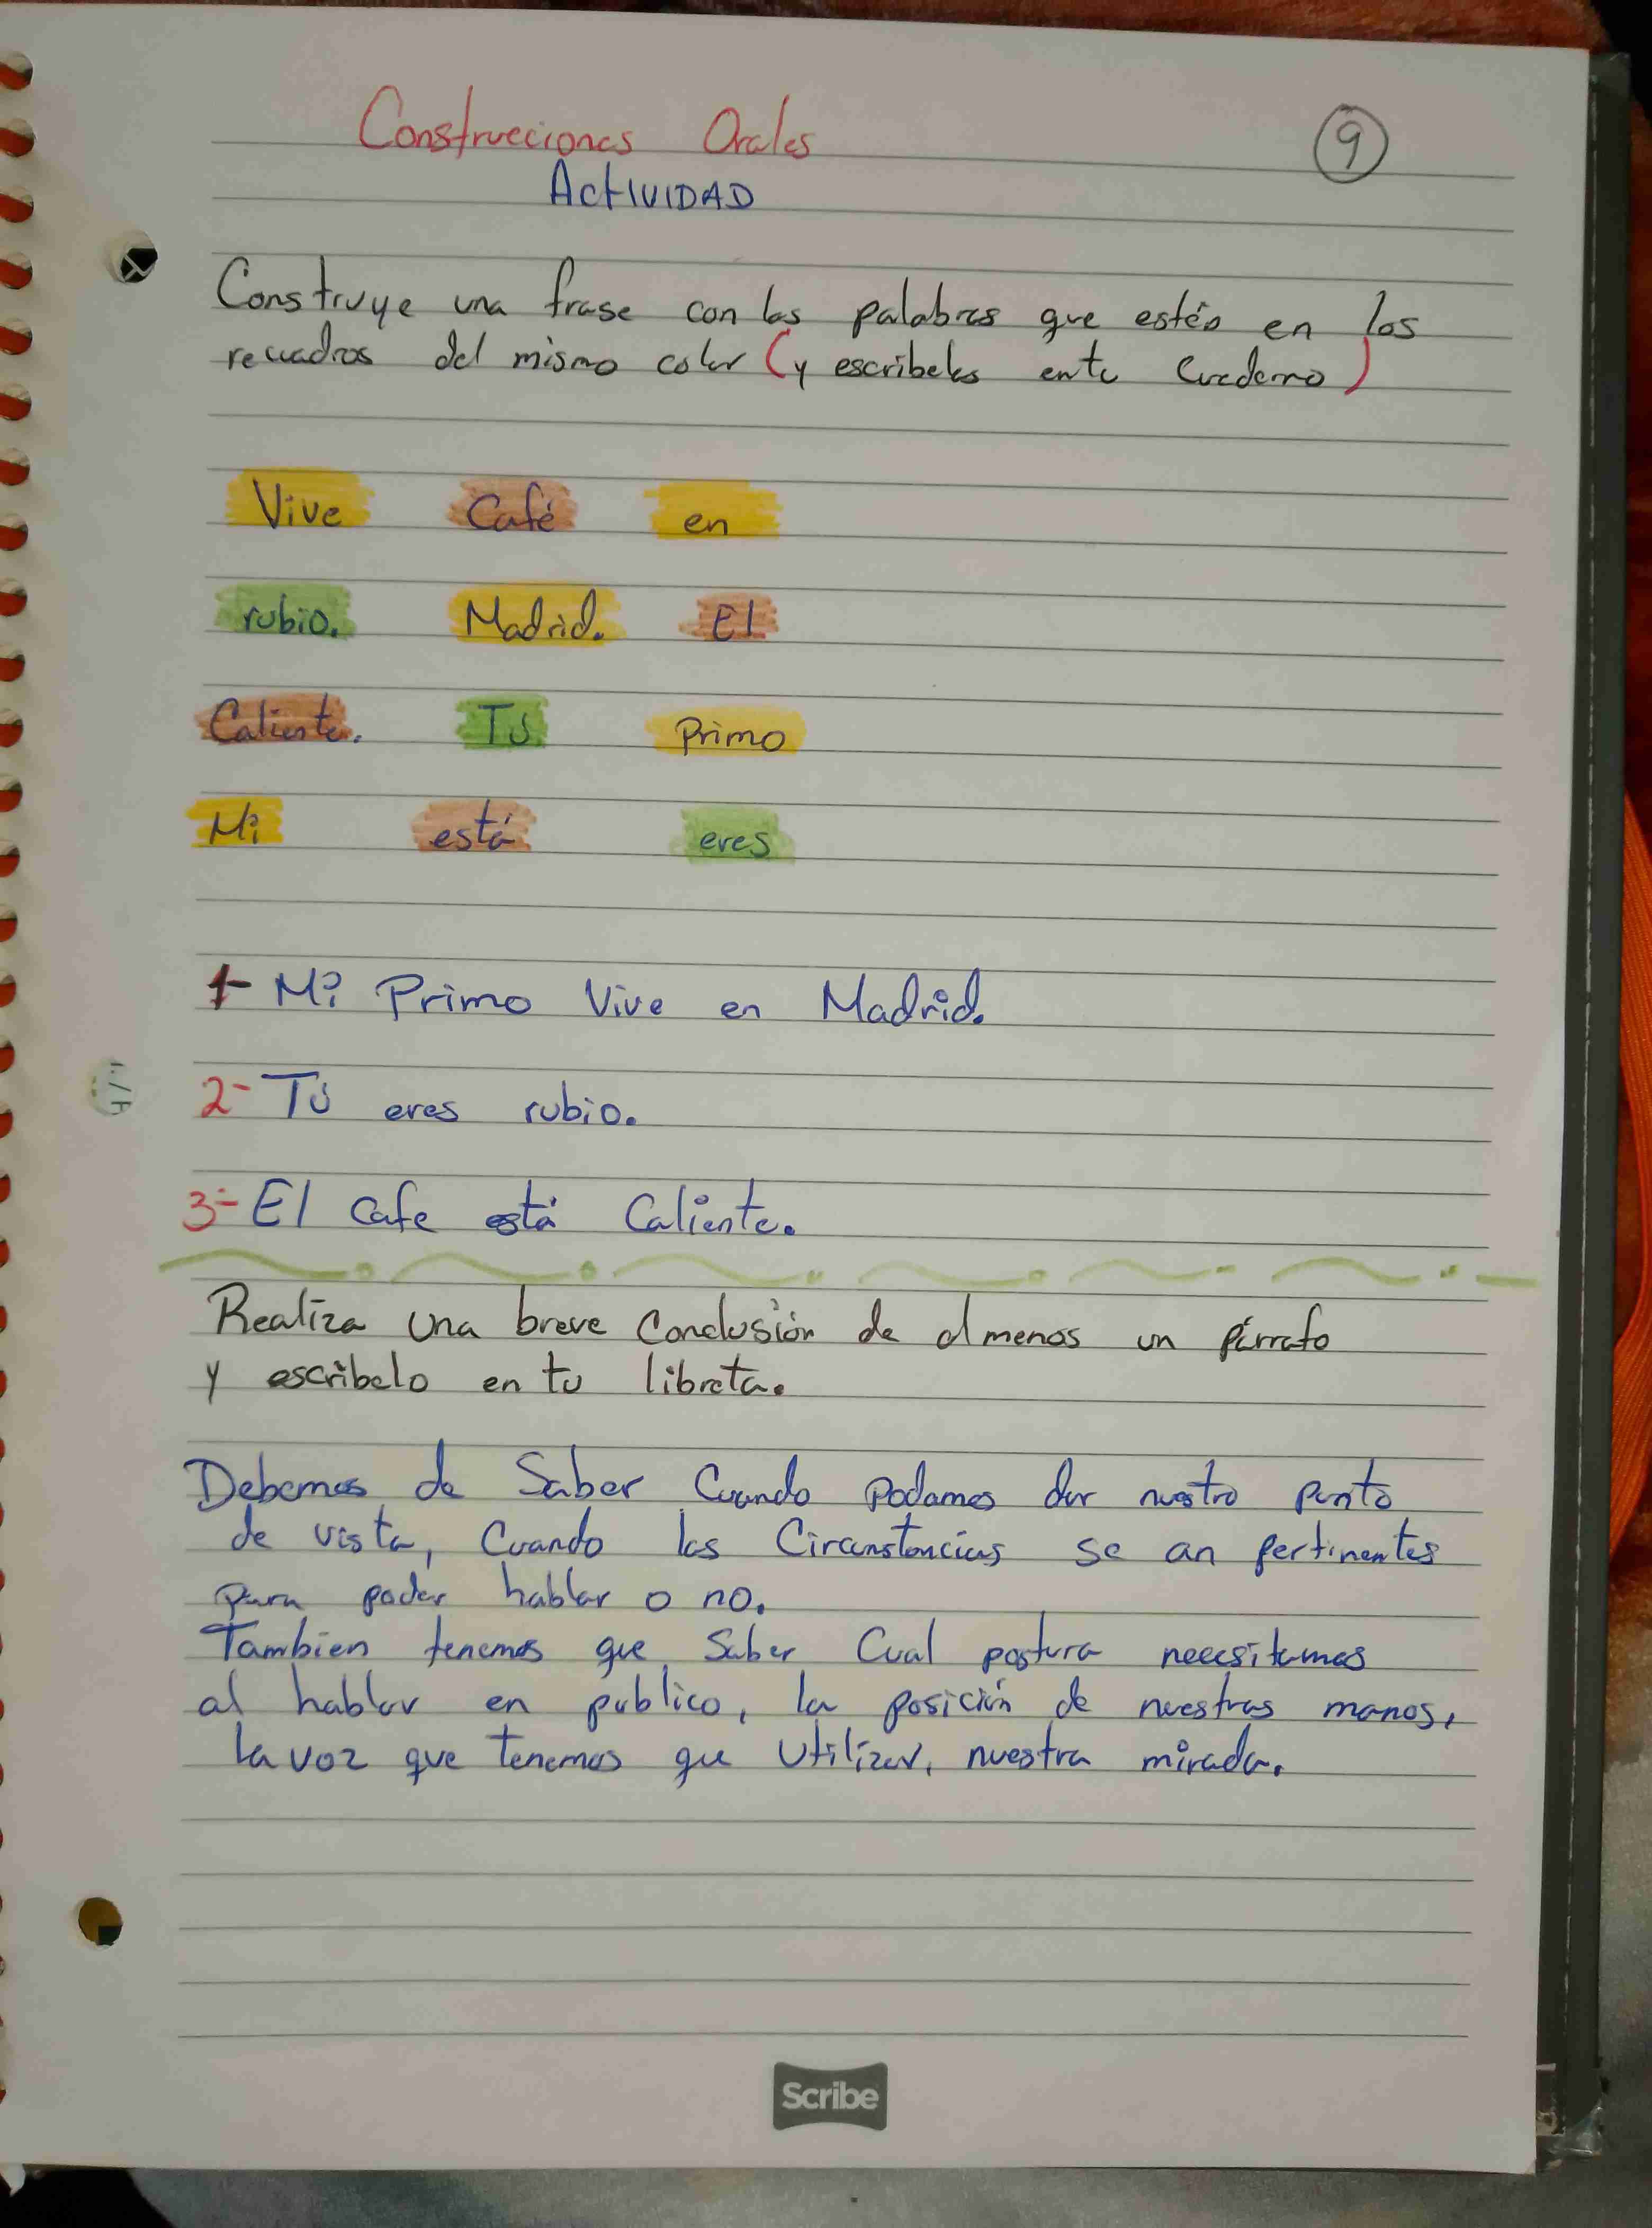 Construcciones Orales
9
ActIVIDAD
Construye una frase con las palabras que estén en los
recuadros del mismo color (y escribelas en tu Cuaderno)
Vive Café en
rubio. Madrid. El
Caliente. Tú Primo
Mi está eres
1- Mi Primo Vive en Madrid.
2- Tú eres rubio.
3- El Cafe está Caliente.
Realiza una breve Conclusión de al menos un párrafo
y escribelo en tu libreta.
Debemos de Saber Cuando podamos dar nuestro punto
de vista, Cuando las Circunstancias se an pertinentes
para poder hablar o no.
Tambien tenemos que Saber Cual postura necesitamos
al hablar en publico, la posición de nuestras manos,
la voz que tenemos que Utilizar, nuestra mirada.
Scribe